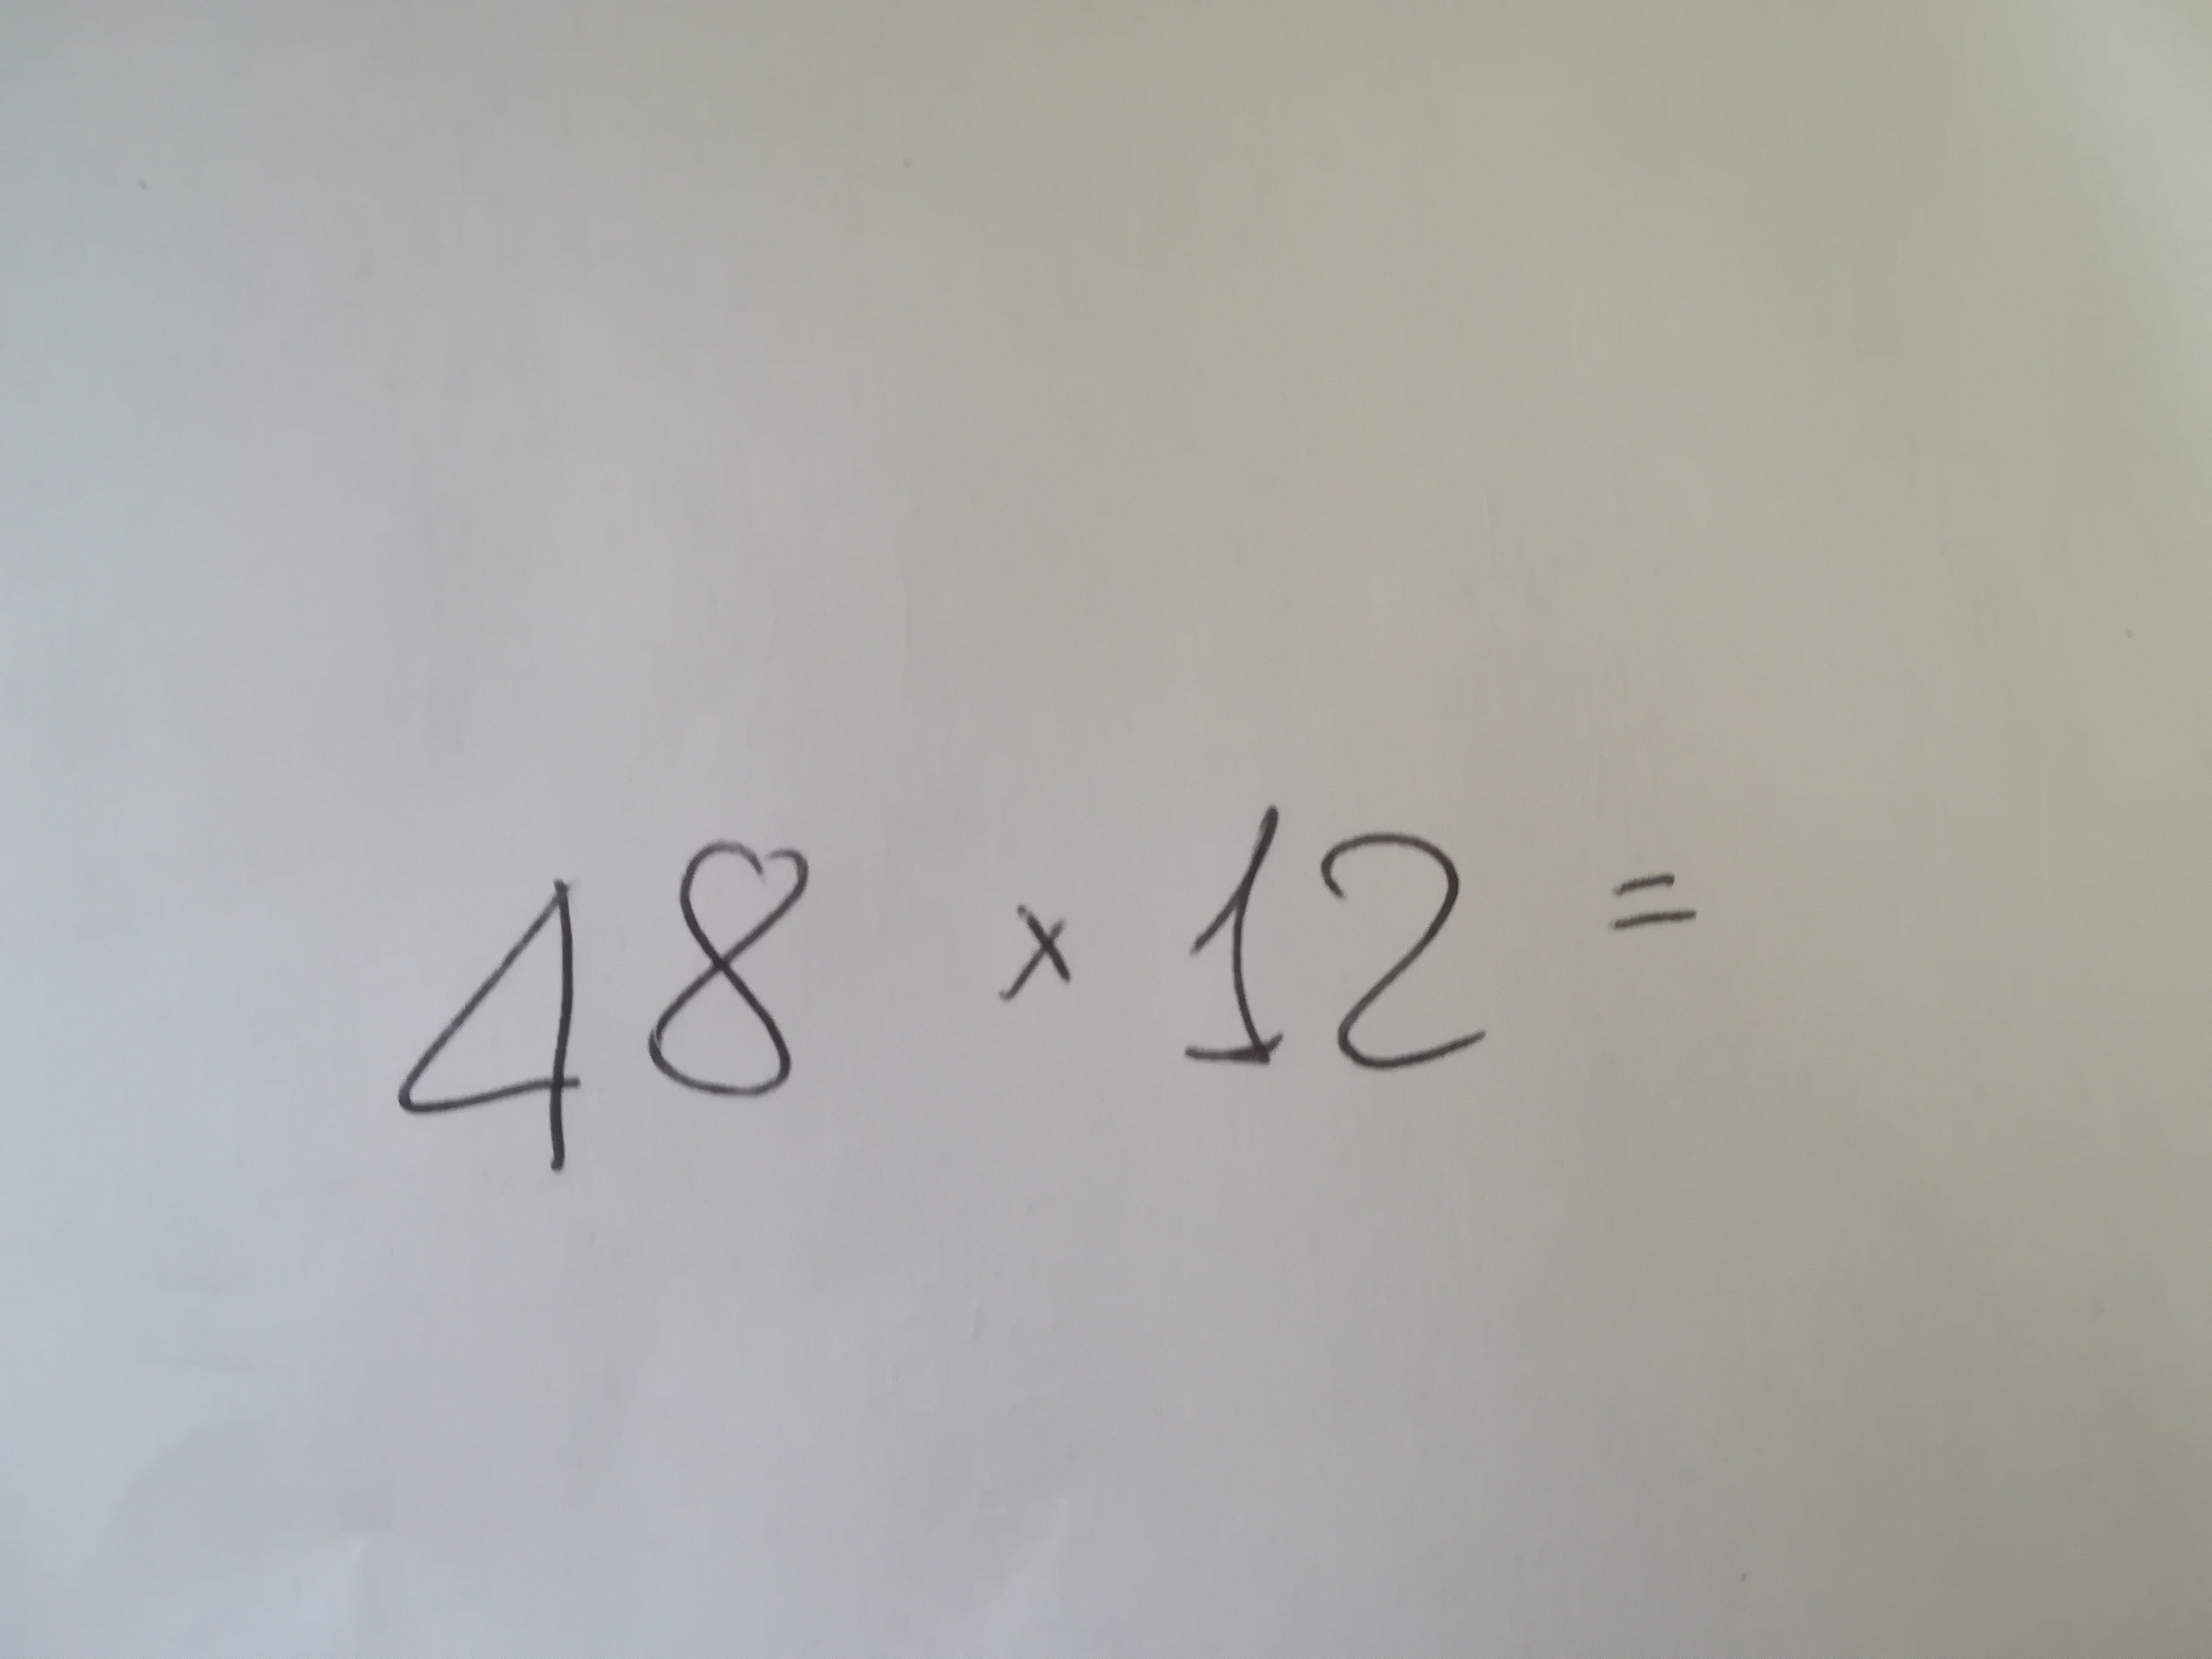 48 x 12 =